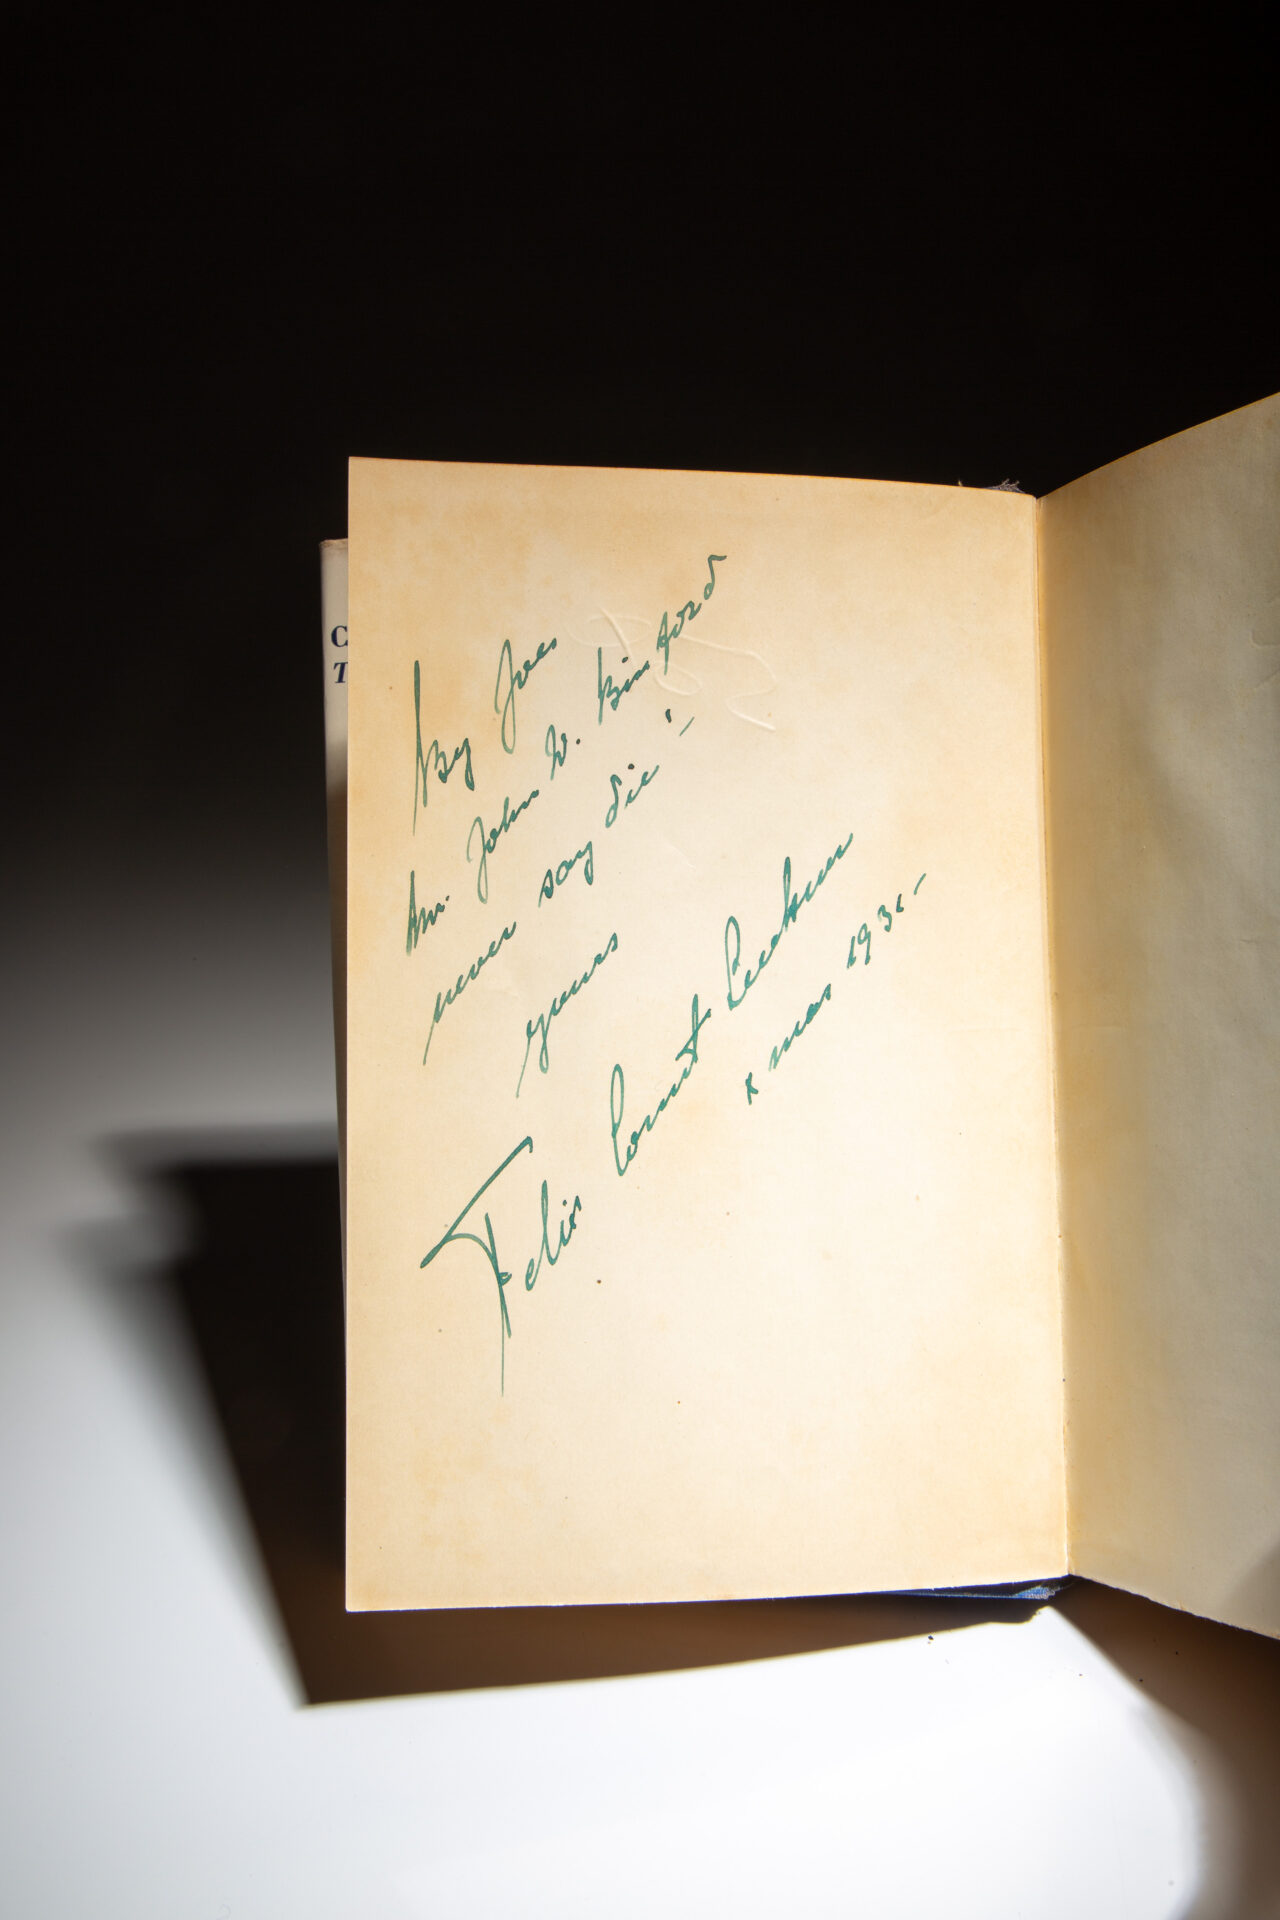 By Joe
Mr. John W. Binford
never say die !-
yours
Felix Count Luckner
xmas
C
T